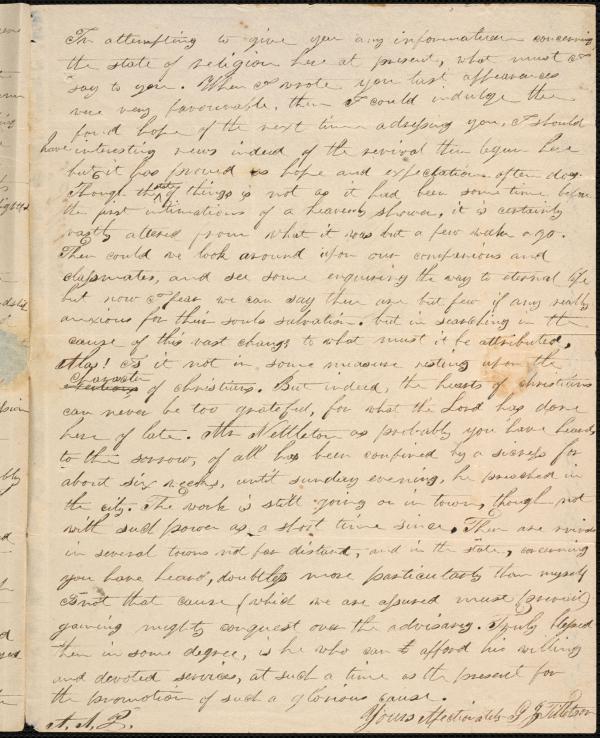 In attempting to give you any information concerning
the state of religion here at present, what must I
say to you. When I wrote you last appearances
were very favourable, then I could indulge the
fond hope of the next time adressing you, I should
have interesting news indeed of the revival then begun here
but it has proved as hope and expectation often does
Though the state of things is not as it had been some time before
the first intimations of a heavenly shower, it is certainly
vastly altered from what it was but a few weeks ago.
Then could we look around upon our companions and
classmates, and see some enquiring the way to eternal life
but now I fear we can say there are but few if any really
anxious for their souls salvation. but in searching in the
cause of this vast change to what must it be attributed,
Alas! Is it not in some measure resting upon the
Character
of christians. But indeed, the hearts of christians
can never be too grateful, for what the Lord has done
here of late. Mr Nettleton as probably you have heard
to the sorrow, of all has been confined by a sickness for
about six weeks, until sunday evening, he preached in
the city. The work is still going on in town, though not
with such power as a short time since. There are revivals
in several towns not far distand, and in the state, concerning
you have heard, doubtless more particularly than myself
Is not that cause (which we are assured must prevail)
gaining mighty conquest over the advisary. Truly blessed
then in some degree, is he who can afford his willing
and devoted services, at such a time as the present for
the promotion of such a glorious cause.
Yours Affectionately G J Tillotson